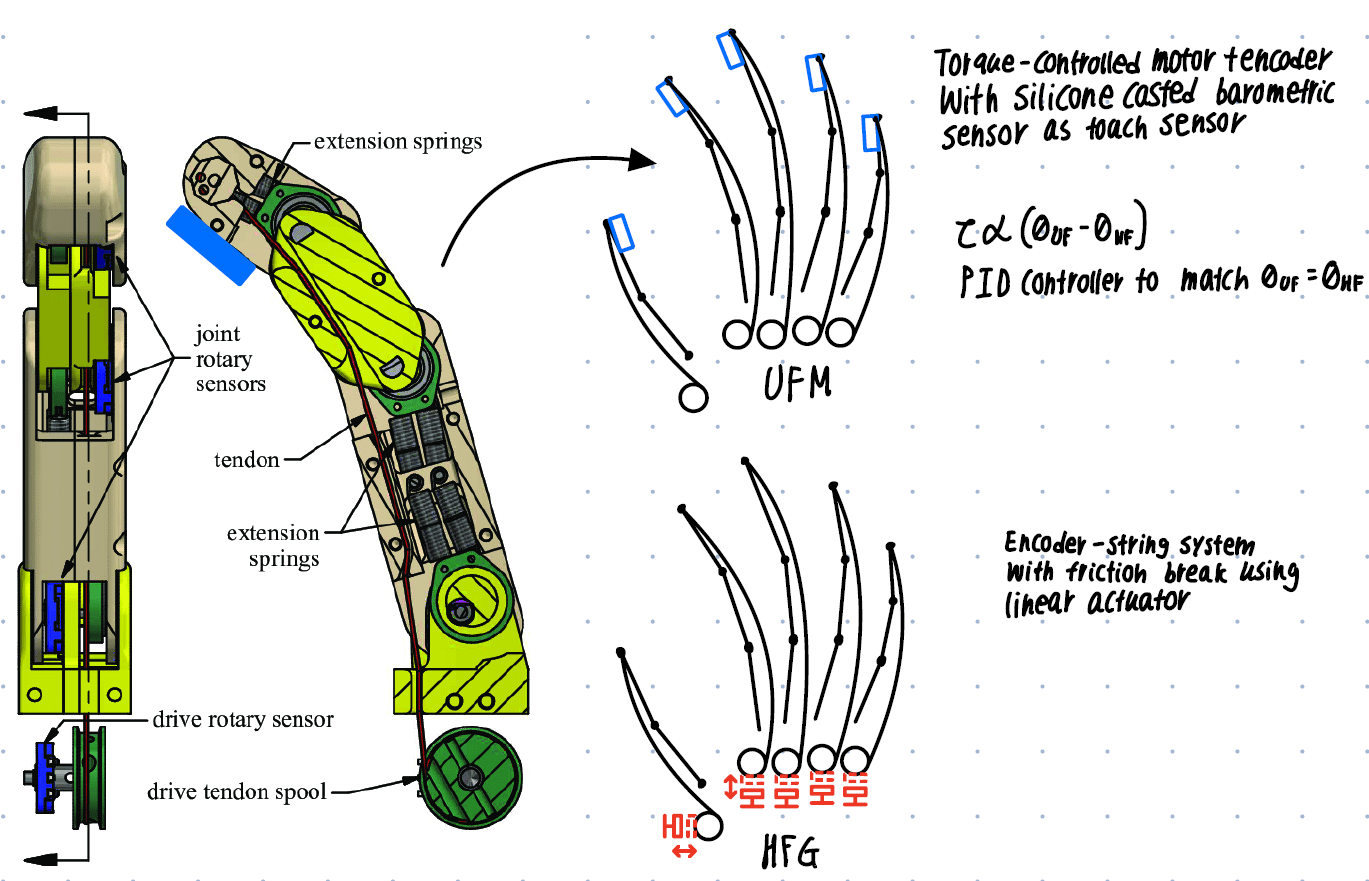 extension springs
joint
rotary
sensors
tendon
extension
springs
drive rotary sensor
drive tendon spool
Torque-controlled motor + encoder
With silicone casted barometric
sensor as toach sensor
τ α (θUF - θHF)
PID controller to match θUF = θHF
UFM
Encoder-string system
with friction break using
linear actuator
HFG